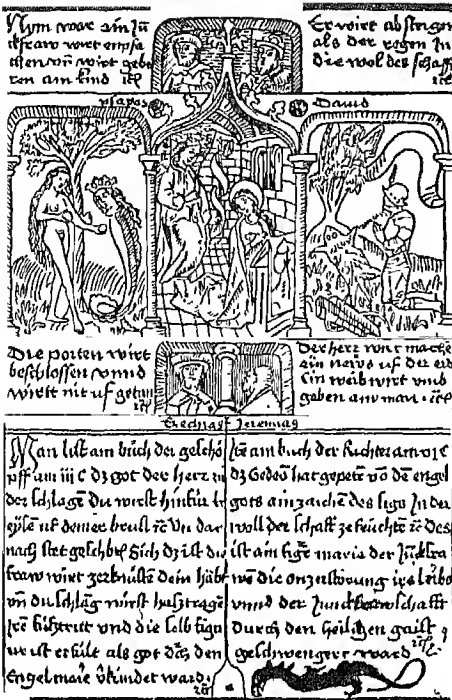 Nym war ain Jū
ckfraw wirt empfa
chen vnd wirt gebe
ren ain kind
Er wirt absteigen
als der regen In
die wol des schaff
ysayas
Dauid
Die porten wirt
beschlossen vnnd
wirtt nit uf getun
Der herr wirt mache
ain news uf der erd
Ein weib wirt vmb
geben
Ezechias Jeremias
Man list am bůch der geschö
pff am iii C dz got der herr zu
der schlagē Du wirst hinfür kr
of demer brust vn dar
nach stet geschbē Sich dz ist die
fraw wirt zerknüsē dein habt
vn du schlāg wirst
vnd die selb figu
ur ist erfült als got dch den
Engel mariē vkindet ward
Itē am buch der Richter am vi C
dz Gedeō hat gepetē vō dē engel
gots ain zaichē des sigs In der
woll der schaff ze feuchte des
ist ain figē maria der Jūckfra
wē die on zustörung irs leibs
vnnd der Junckfrowschafft
durch den heiligen gaist
geschwengert ward